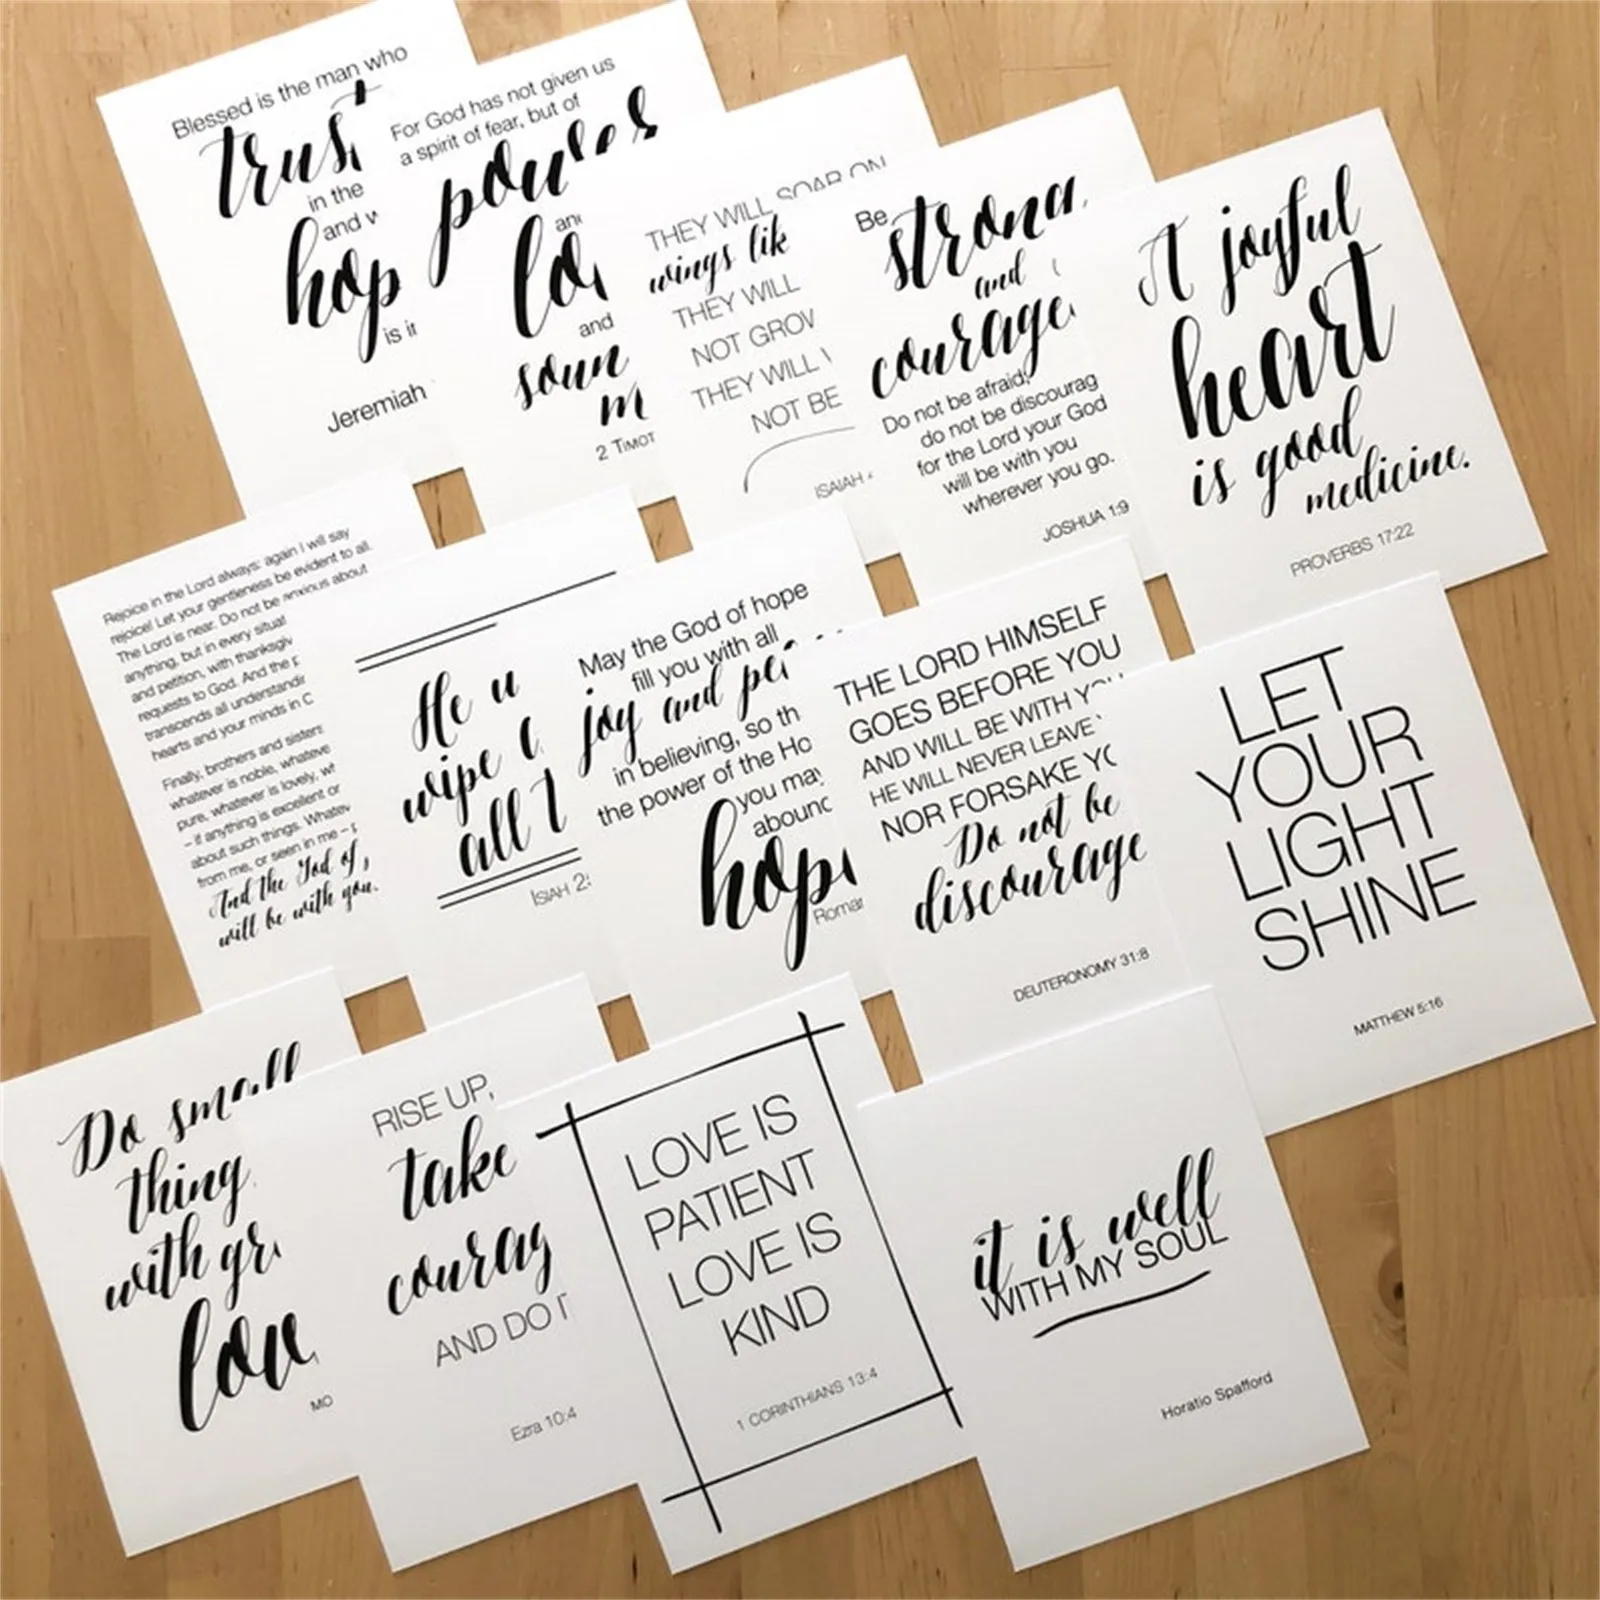 Blessed is the man who
trust
in the
and w
hop
is in
Jeremiah
For God has not given us
a spirit of fear, but of
power
and
lov
and
soun
m
2 TIMOT
THEY WILL SOAR ON
wings lik
THEY WILL
NOT GROW
THEY WILL
NOT BE
ISAIAH
Be
strong
and
courage
Do not be afraid;
do not be discourag
for the Lord your God
will be with you
wherever you go.
JOSHUA 1:9
A joyful
heart
is good
medicine.
PROVERBS 17:22
Rejoice in the Lord always: again I will say
rejoice! Let your gentleness be evident to all.
The Lord is near. Do not be anxious about
anything, but in every situat
and petition, with thanksgiv
requests to God. And the p
transcends all understandin
hearts and your minds in C
Finally, brothers and sisters
whatever is noble, whateve
pure, whatever is lovely, wh
– if anything is excellent or
about such things. Whatev
from me, or seen in me –
And the God of
will be with you.
He w
wipe
all t
ISIAH 25
May the God of hope
fill you with all
joy and pe
in believing, so th
the power of the Ho
you may
abound
hope
Roman
THE LORD HIMSELF
GOES BEFORE YOU
AND WILL BE WITH YOU
HE WILL NEVER LEAVE
NOR FORSAKE YO
Do not be
discourage
DEUTERONOMY 31:8
LET
YOUR
LIGHT
SHINE
MATTHEW 5:16
Do small
thing
with gre
love
MO
RISE UP,
take
courag
AND DO I
Ezra 10:4
LOVE IS
PATIENT
LOVE IS
KIND
1 CORINTHIANS 13:4
it is well
WITH MY SOUL
Horatio Spafford